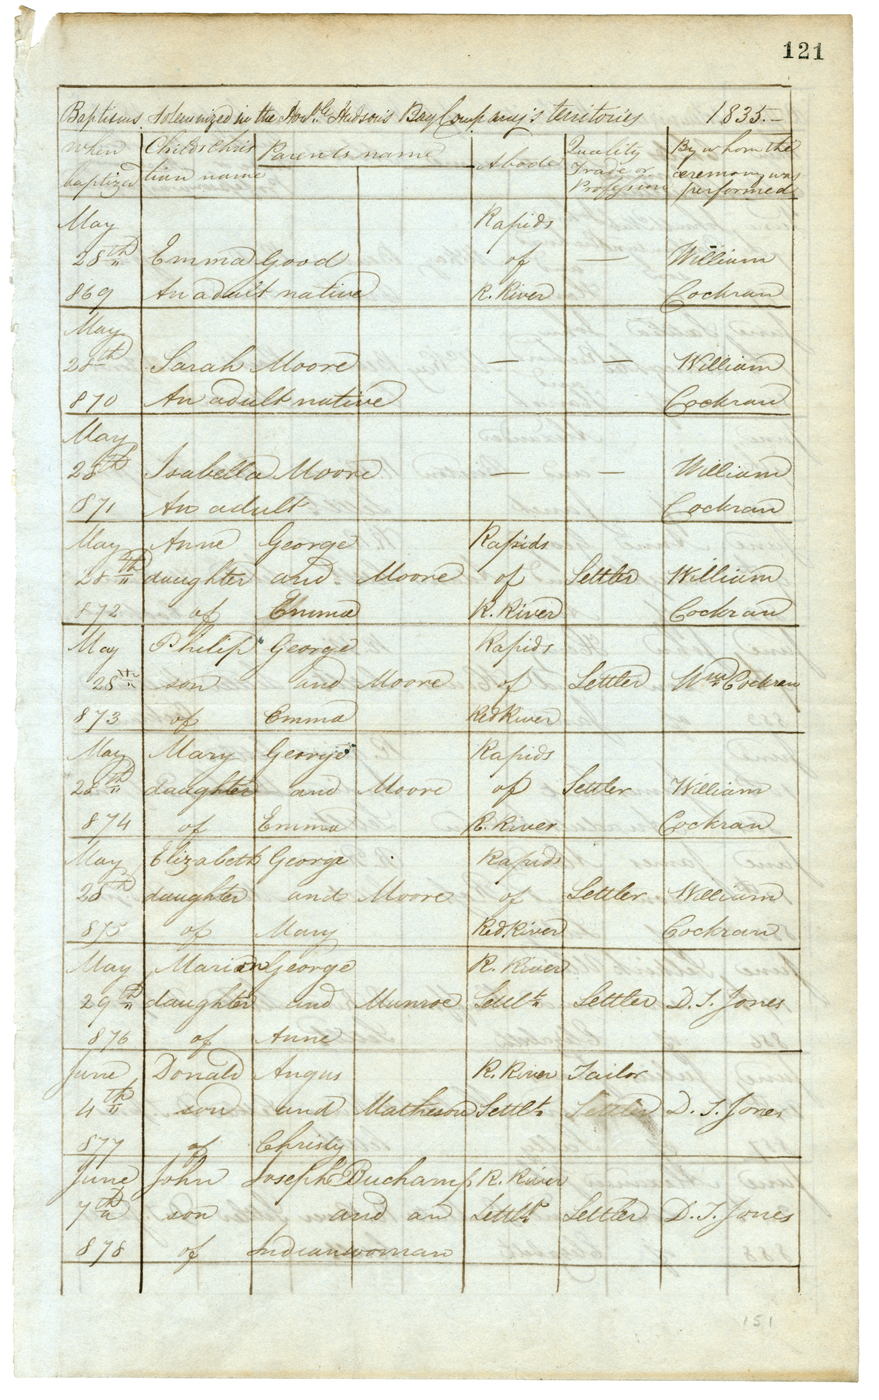 121
Baptisms solemnized in the Hon.ble Hudson's Bay Company's territories 1835.—
When baptized Childs Christian name Parents name Abode Quality Trade or Profession By whom the ceremony was performed
May Rapids
28th Emma Good of — William
869 An adult native R. River Cockran
May
28th Sarah Moore — — William
870 An adult native Cockran
May
28th Isabella Moore — — William
871 An adult Cockran
May Anne George Rapids
28th daughter and Moore of Settler William
872 of Emma R. River Cockran
May Philip George Rapids
28th son and Moore of Settler Wm Cockran
873 of Emma Red River
May Mary George Rapids
28th daughter and Moore of Settler William
874 of Emma R. River Cockran
May Elizabeth George Rapids
28th daughter and Moore of Settler William
875 of Mary Red River Cockran
May Marian George R. River
29th daughter and Munroe Settlt. Settler D. T. Jones
876 of Anne
June Donald Angus R. River Tailor
4th son and Matheson Settlt. Settler D. T. Jones
877 of Christy
June John Joseph Buchamp R. River
7th son and an Settlt. Settler D. T. Jones
878 of Indian woman
151